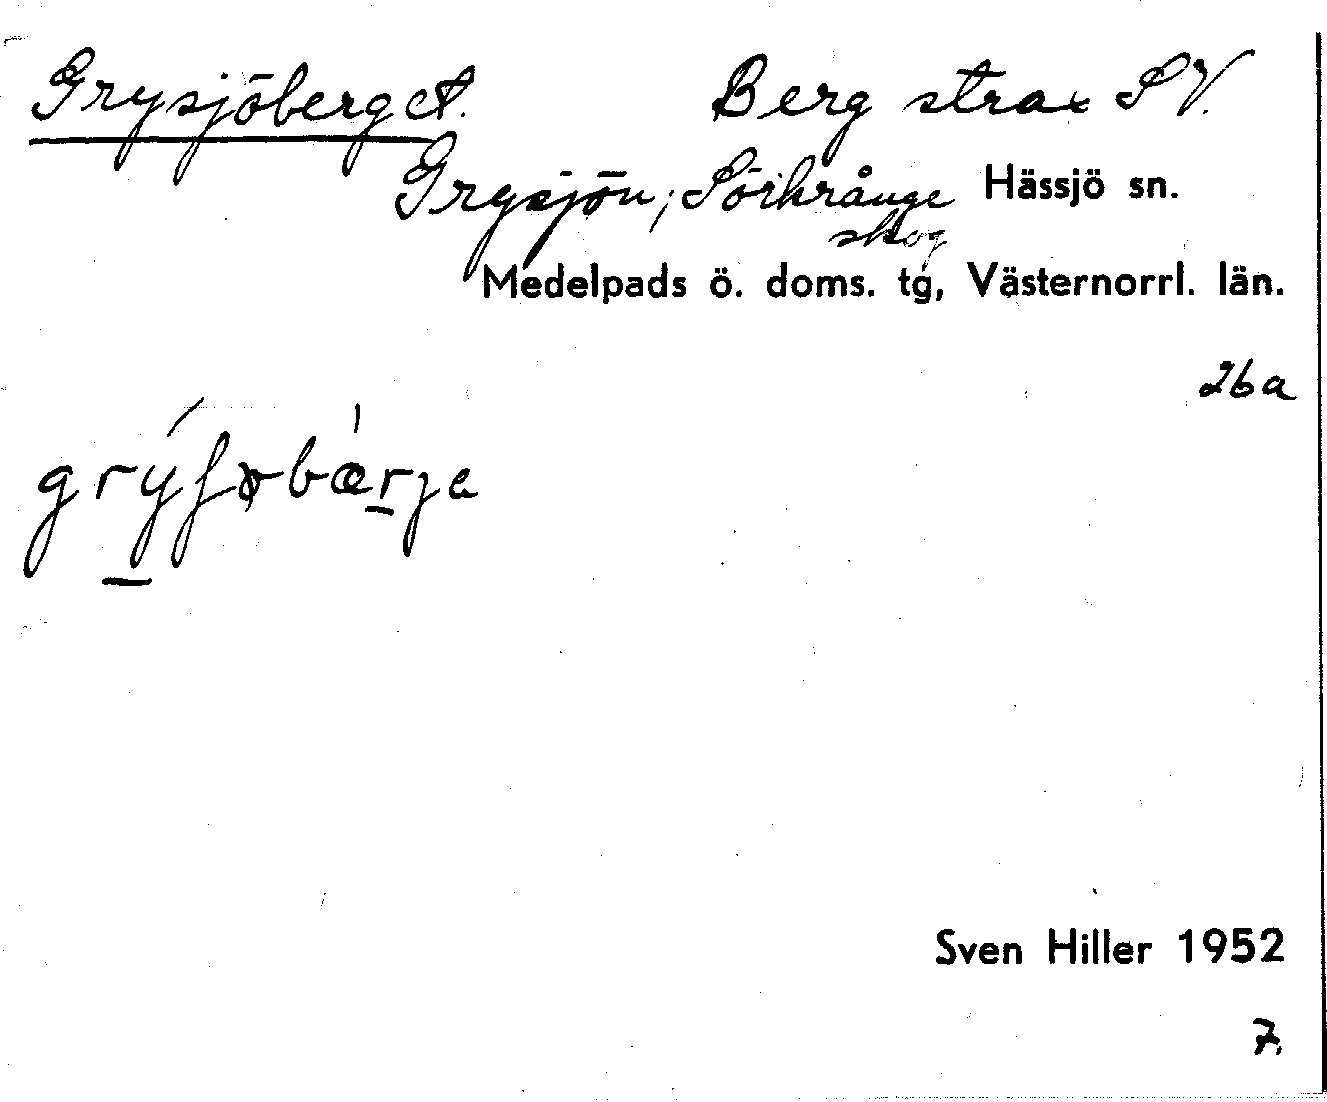 Grysjöberget. Berg strax SV.
Grysjön; Sörkrånge Hässjö sn.
skog
Medelpads ö. doms. tg, Västernorrl. län.
26a
Sven Hiller 1952
7.